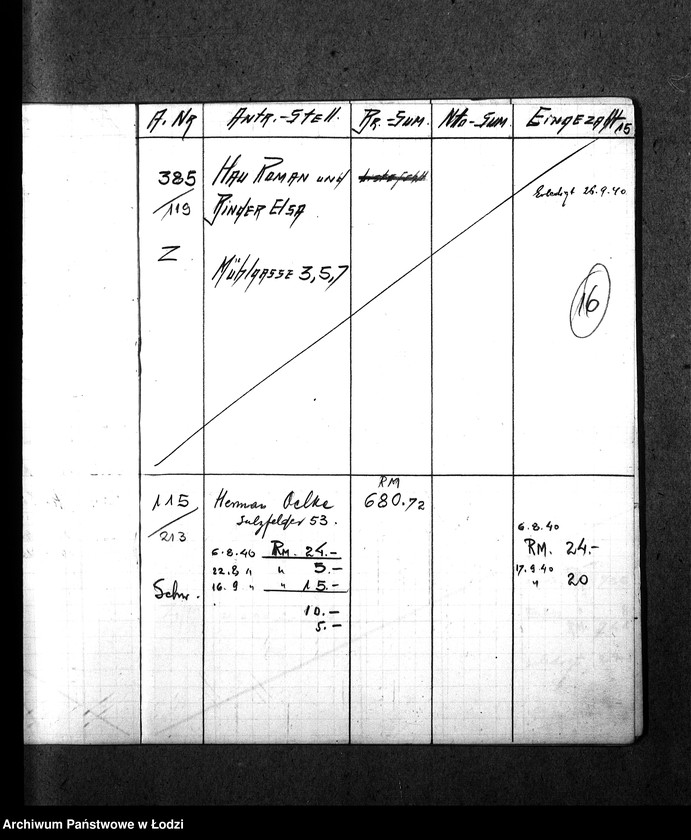 A. Nr Antr.-Stell. Br.-Sum. Nto-Sum. Eingezahlt 15
385 Hau Roman und
119 Binder Elsa
Erledigt 26.9.40
Z
Mühlgasse 3,5,7
16
115 Herman Oelke RM 680.72
213 Sulzfelder 53.
6.8.40 RM. 24.-
22.8 " " 5.-
Schw. 16.9 " " 15.-
10.-
5.-
6.8.40
RM. 24.-
17.9.40
" 20
Archiwum Państwowe w Łodzi